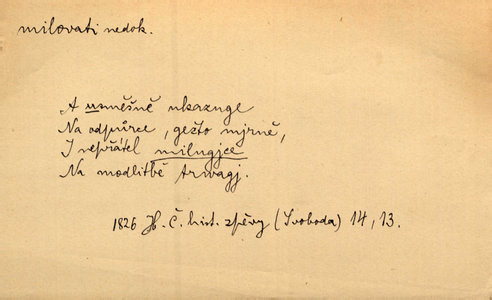 milovati nedok.
A usměšně ukazuge
Na odpůrce, gežto mjrně,
I nepřátel milugjce
Na modlitbě trwagj.
1826 H. Č. hist. zpěvy (Svoboda) 14, 13.